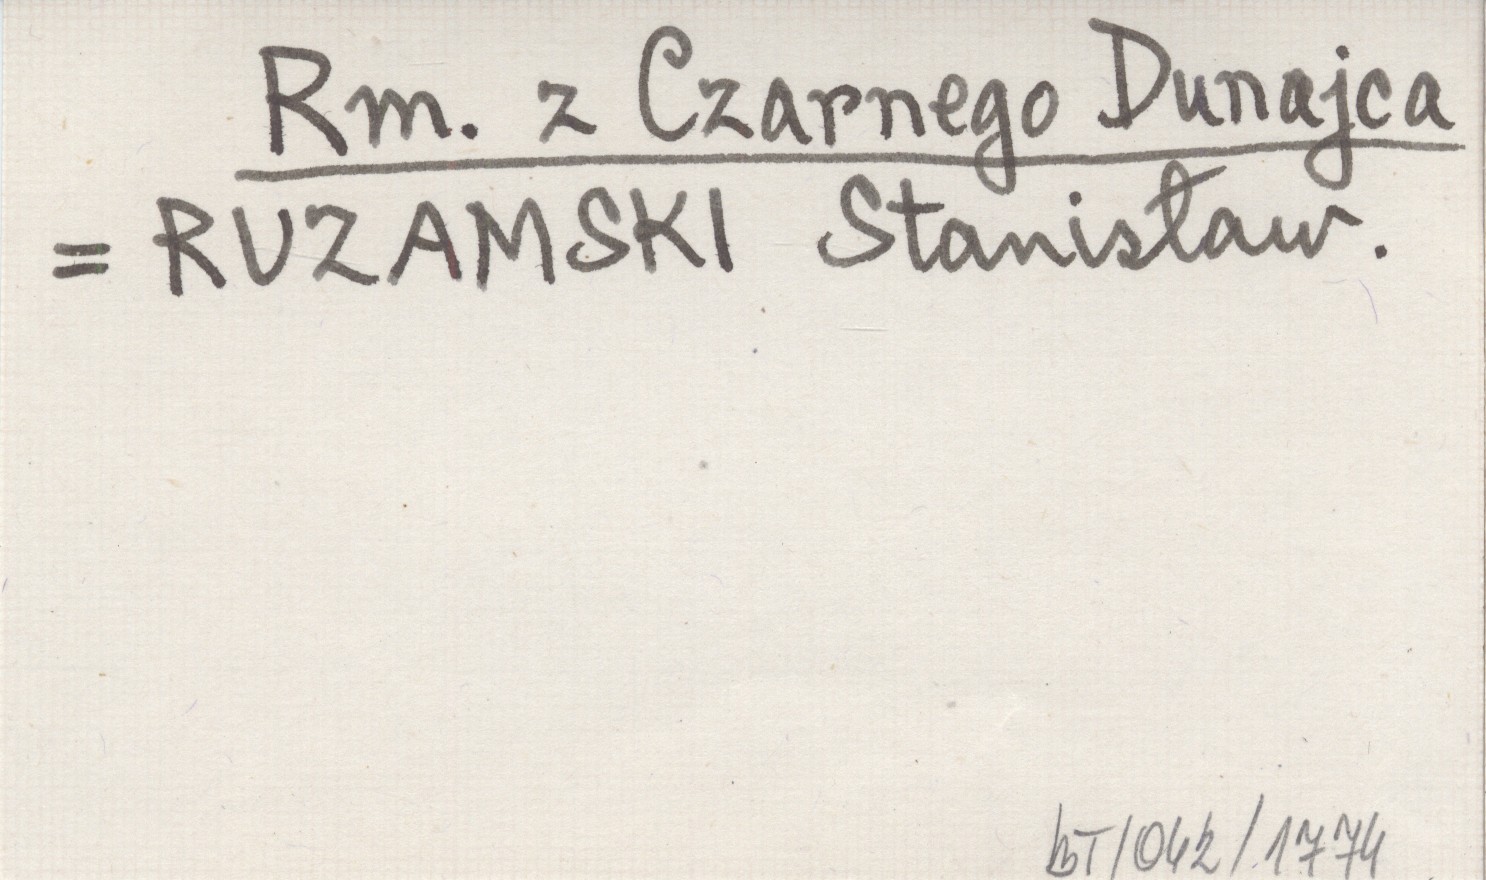 Rm. z Czarnego Dunajca
= RUZAMSKI Stanisław.
BT/042/1774